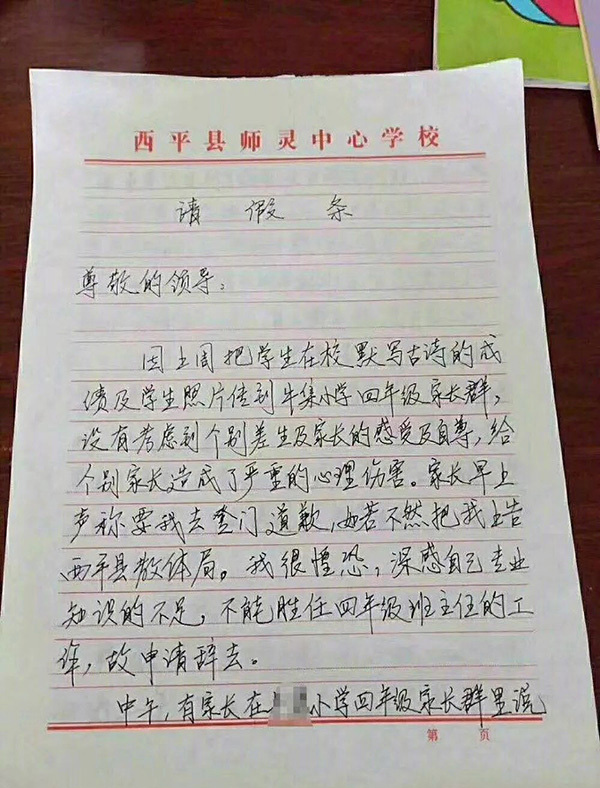 西平县师灵中心学校
请假条
尊敬的领导：
因上周把学生在校默写古诗的成
绩及学生照片传到牛集小学四年级家长群，
没有考虑到个别差生及家长的感受及自尊，给
个别家长造成了严重的心理伤害。家长早上
声称要我去登门道歉，如若不然把我上告
西平县教体局。我很惶恐，深感自己专业
知识的不足，不能胜任四年级班主任的工
作，故申请辞去。
中午，有家长在小学四年级家长群里说
第 页